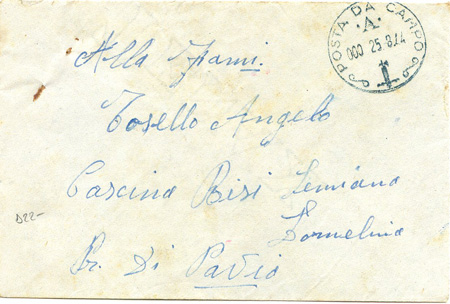 POSTA DA CAMPO
·A·
000 25 8.74
Alla Fam.
Tosello Angelo
Cascina Bisi Semiana
Lomelina
Pr. Di Pavia
D22-